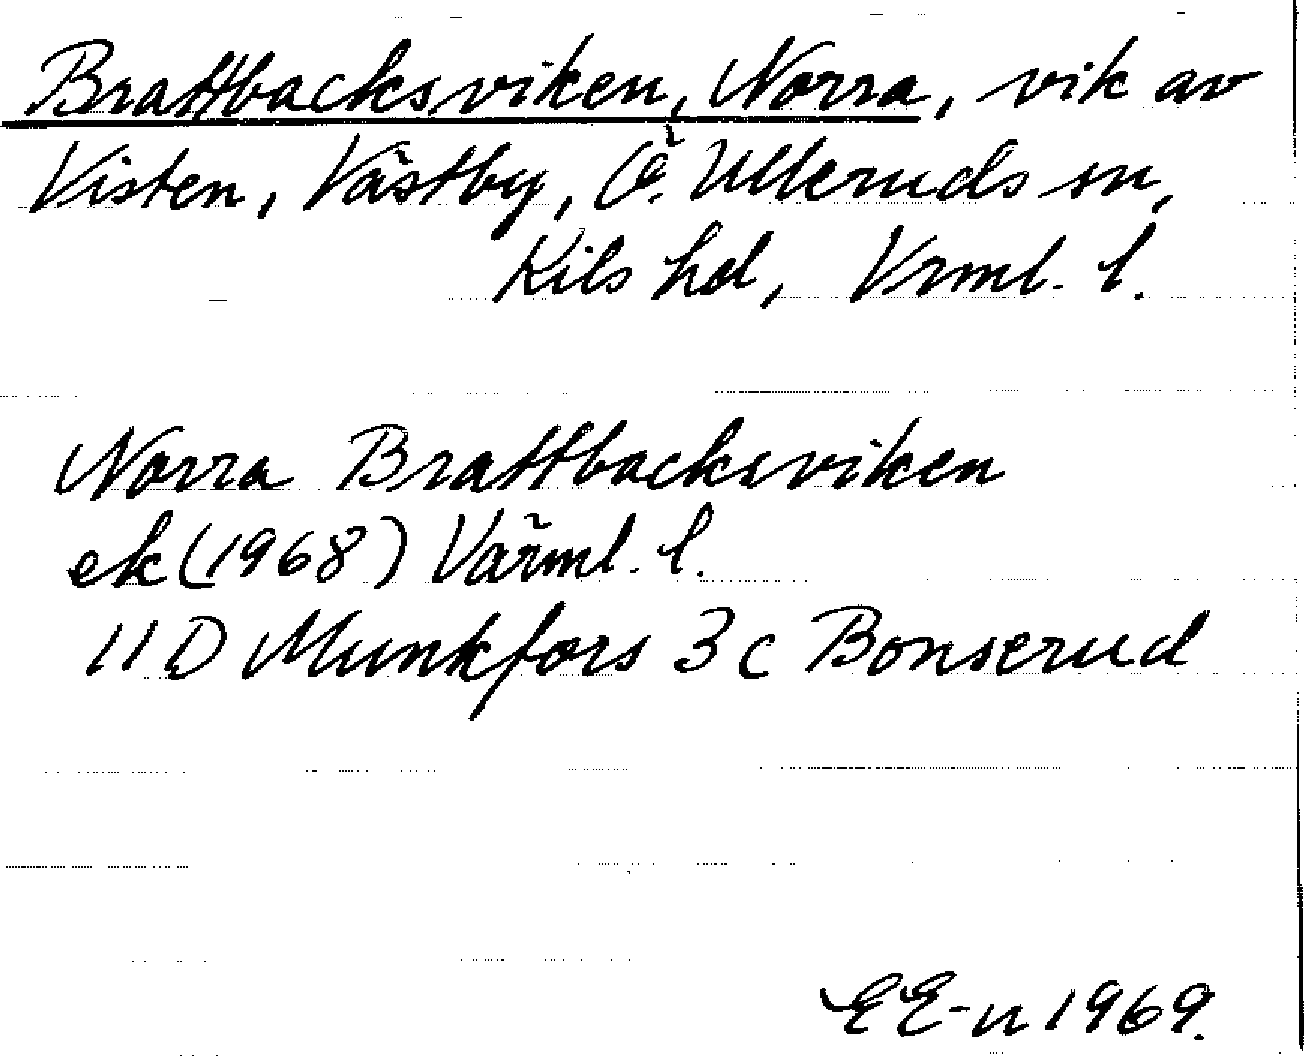 Brattbacksviken, Norra, vik av
Visten, Västby, Ö. Ulleruds sn,
Kils hd, Vrml. l.
Norra Brattbacksviken
ek (1968) Värml. l.
11 D Munkfors 3 c Bonserud
EE-n 1969.